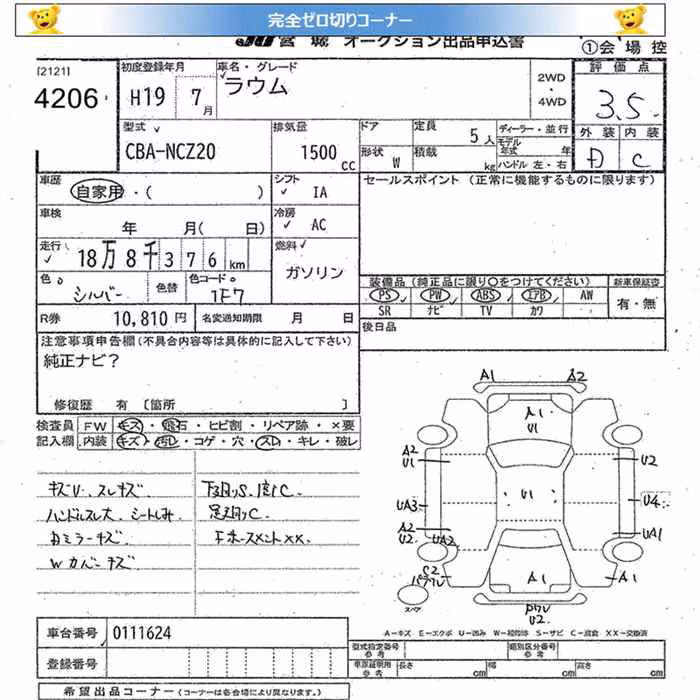 完全ゼロ切りコーナー
JU 宮城 オークション出品申込書
①会場控
[2121]
4206
初度登録年月
H19 7月
車名・グレード
ラウム
2WD
・
4WD
評価点
3.5
型式
CBA-NCZ20
排気量
1500 cc
ドア
形状 W
定員 5人
積載 kg
ディーラー・並行
モデル年式 年
ハンドル 左・右
外装 内装
D C
車歴 自家用・( )
シフト IA
セールスポイント (正常に機能するものに限ります)
車検 年 月( 日)
冷房 AC
走行 18万8千376km
燃料 ガソリン
色 シルバー 色替 色コード 1F7
装備品(純正品に限り○をつけてください) 新車保証書
PS PW ABS エアB AW 有・無
SR ナビ TV カワ
R券 10,810円 名変通知期限 月 日
後日品
注意事項申告欄(不具合内容等は具体的に記入して下さい)
純正ナビ?
修復歴 有 〔箇所 〕
検査員 FW キズ・飛石・ヒビ割・リペア跡・×要
記入欄 内装 キズ・汚レ・コゲ・穴・スレ・キレ・破レ
キズU、スレキズ、
ハンドルスレ大、シートしみ
Dミラーキズ
Wカバーキズ
下廻りS、
足廻りC、
A1 A2
A1
U1
A2
U1
U2
U1
UA3
U4
A2
U2
UA2
UA1
S2
スペア
A1
A1
U2
A-キズ E-エクボ U-凹み W-補修跡 S-サビ C-腐食 XX-交換済
車台番号 0111624
型式指定番号 参考
類別区分番号 参考
登録番号
車庫証明用 参考 長さ cm 幅 cm 高さ cm
希望出品コーナー(コーナーは各会場により異なります。)